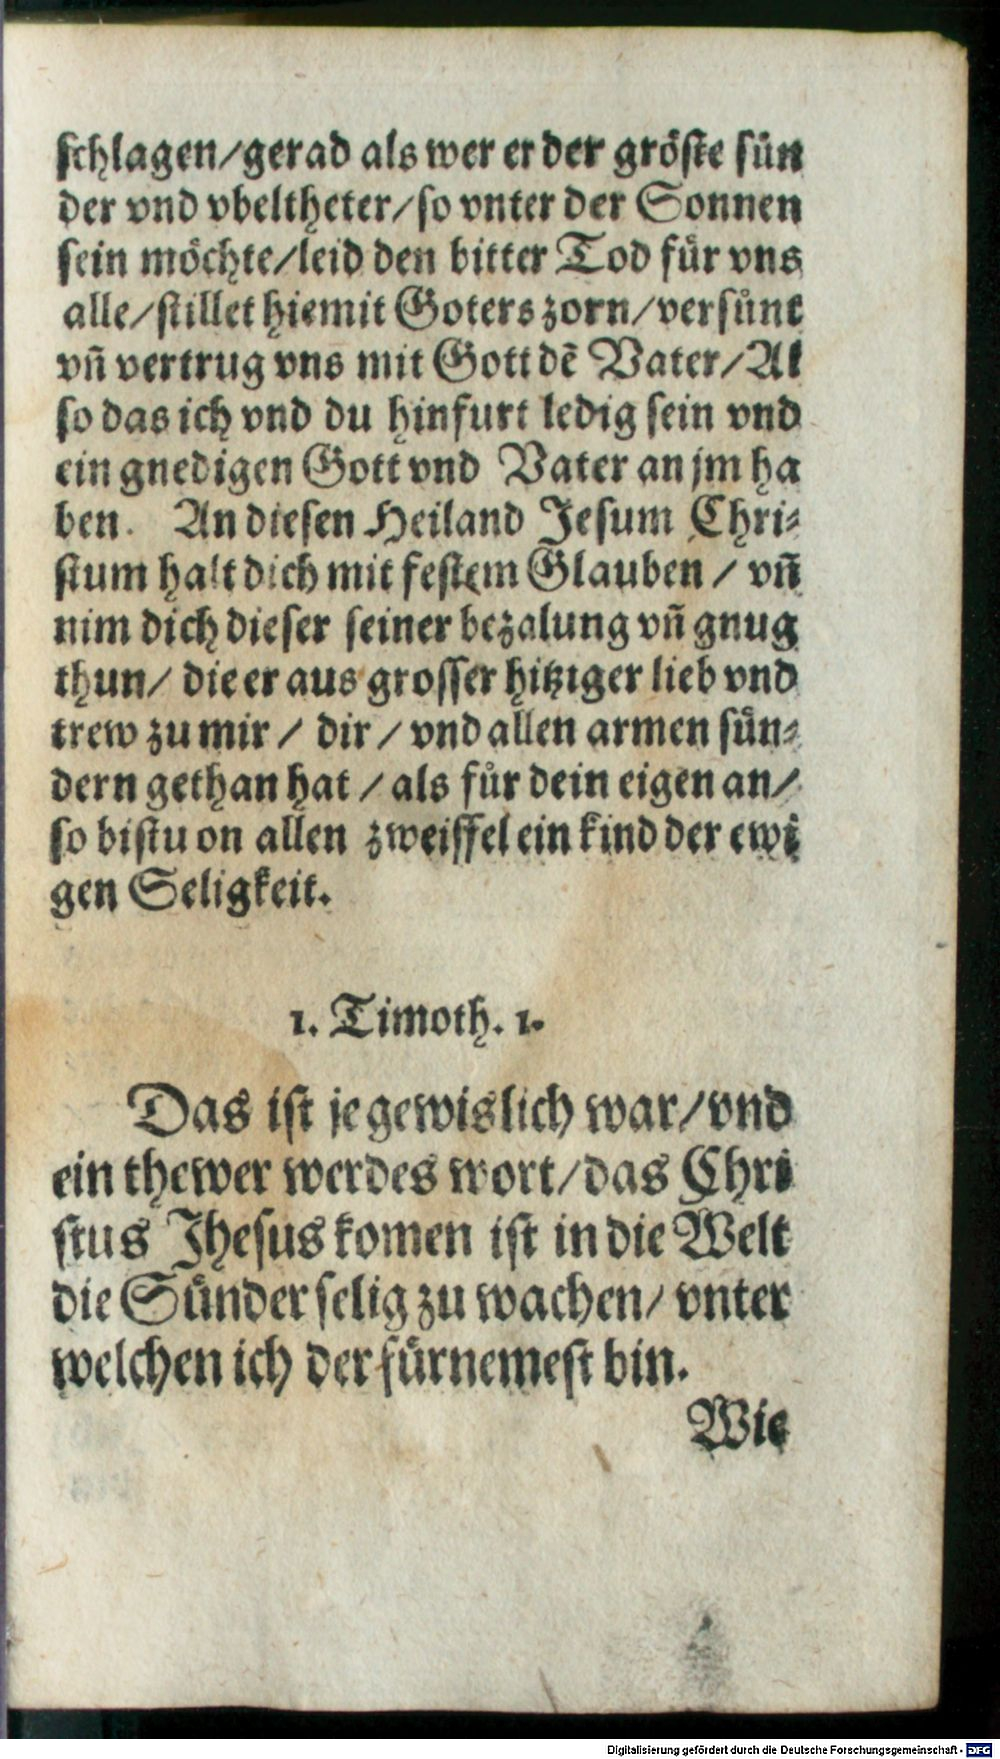 schlagen/gerad als wer er der gröste sün
der vnd vbeltheter/so vnter der Sonnen
sein möchte/leid den bitter Tod für vns
alle/stillet hiemit Goters zorn/versünt
vn̄ vertrug vns mit Gott dē Vater/Al
so das ich vnd du hinfurt ledig sein vnd
ein gnedigen Gott vnd Vater an jm ha
ben. An diesen Heiland Jesum Chri⸗
stum halt dich mit festem Glauben / vn̄
nim dich dieser seiner bezalung vn̄ gnug
thun/ die er aus grosser hitziger lieb vnd
trew zu mir / dir / vnd allen armen sün⸗
dern gethan hat / als für dein eigen an/
so bistu on allen zweiffel ein kind der ewi
gen Seligkeit.
1. Timoth. 1.
Das ist je gewislich war/vnd
ein thewer werdes wort/das Chri
stus Jhesus komen ist in die Welt
die Sünder selig zu wachen/ vnter
welchen ich der fürnemest bin.
Wie
Digitalisierung gefördert durch die Deutsche Forschungsgemeinschaft - DFG